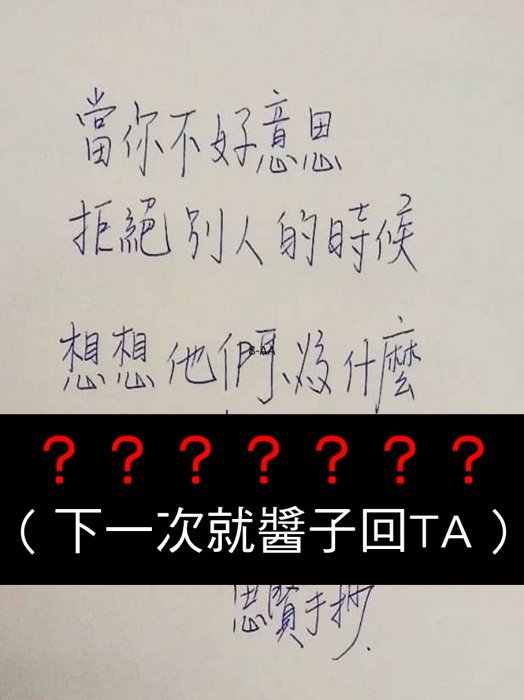 當你不好意思
拒絕別人的時候
想想他們為什麼
B-AA
？？？？？？？
（下一次就醬子回TA）
思賢手抄.